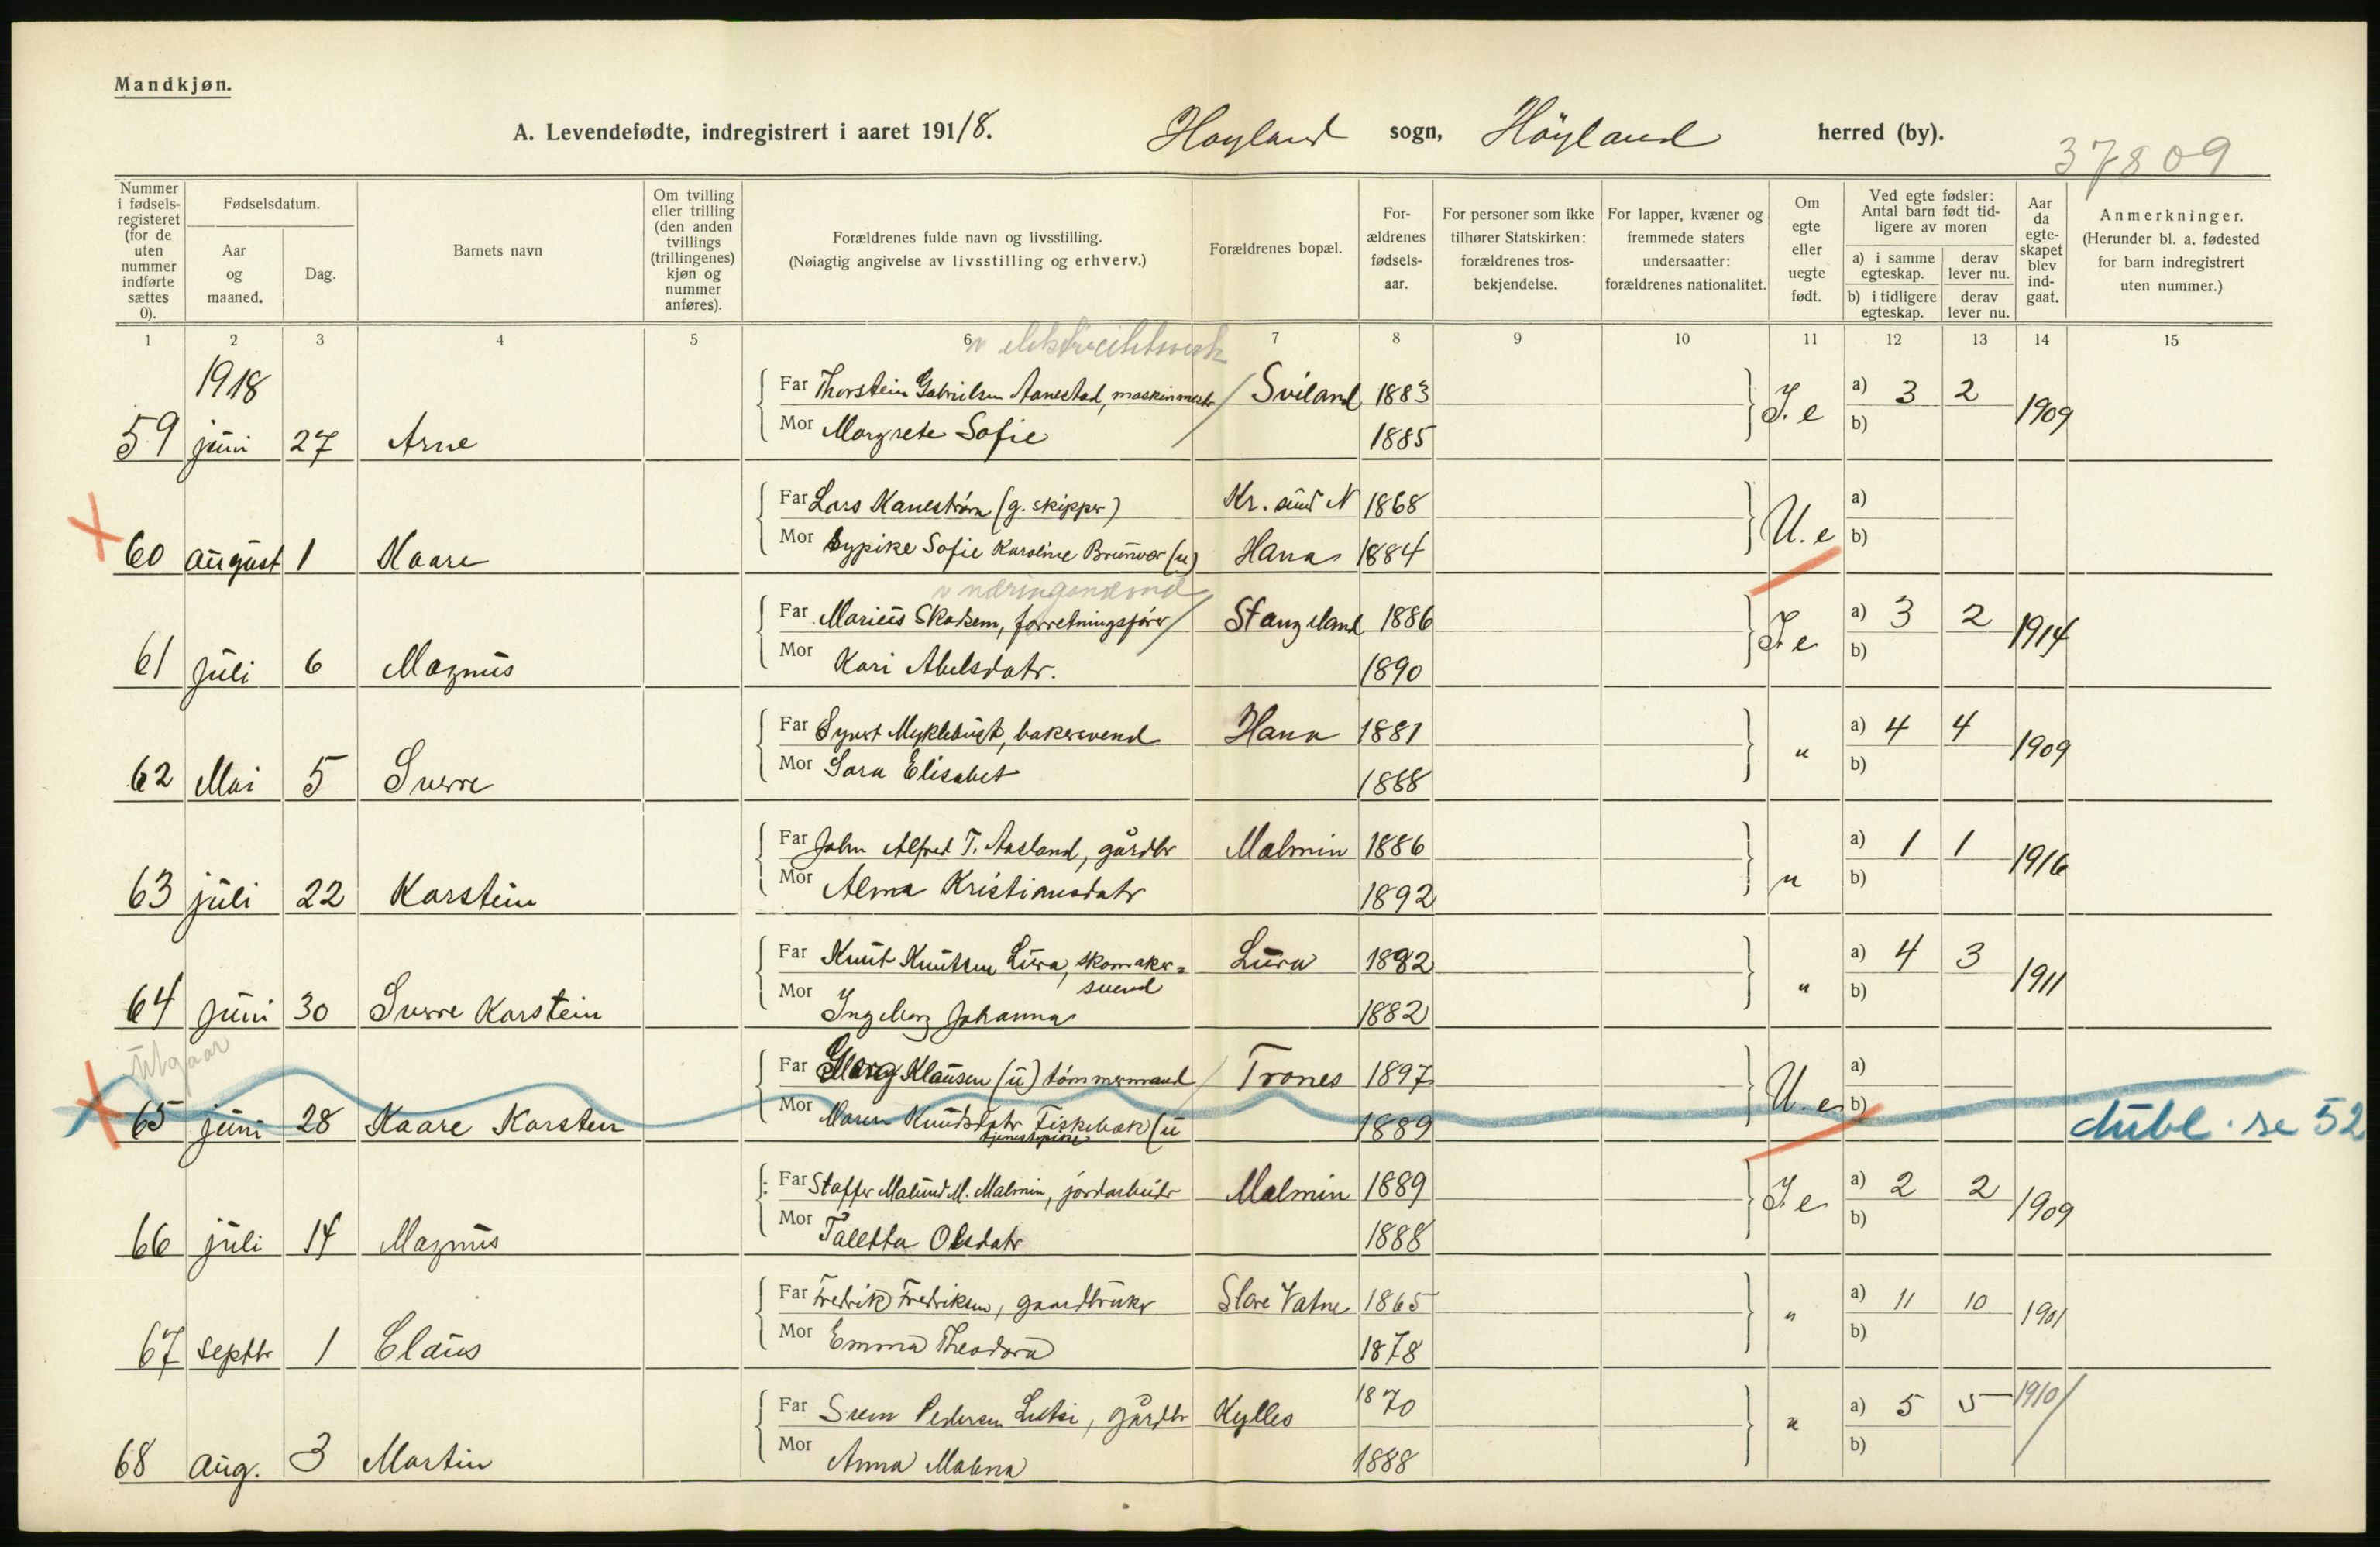 Mandkjøn.
A. Levendefødte, indregistrert i aaret 1918. Høyland sogn, Höyland herred (by).
37809
Nummer i fødsels-registeret (for de uten nummer indførte sættes 0).
Fødselsdatum.
Aar og maaned.
Dag.
Barnets navn
Om tvilling eller trilling (den anden tvillings (trillingenes) kjøn og nummer anføres).
Forældrenes fulde navn og livsstilling.
(Nøiagtig angivelse av livsstilling og erhverv.)
Forældrenes bopæl.
For-ældrenes fødsels-aar.
For personer som ikke tilhører Statskirken: forældrenes tros-bekjendelse.
For lapper, kvæner og fremmede staters undersaatter: forældrenes nationalitet.
Om egte eller uegte født.
Ved egte fødsler: Antal barn født tid-ligere av moren
a) i samme egteskap. derav lever nu.
b) i tidligere egteskap. derav lever nu.
Aar da egte-skapet blev ind-gaat.
Anmerkninger.
(Herunder bl. a. fødested for barn indregistrert uten nummer.)
1 2 3 4 5 6 7 8 9 10 11 12 13 14 15
v elektricitetsverk
1918
Far Thorstein Gabrielsen Aanestad, maskinmestr Sviland 1883 I. e a) 3 2 1909
59 juni 27 Arne Mor Margrete Sofie 1885 b)
Far Lars Kanestrøm (g. skipper) Kr. sund N 1868 U. e a)
60 august 1 Kaare Mor Sypike Sofie Karoline Brunvær (u) Hana 1884 b)
Far Marius Skadsem, forretningsfører Stangeland 1886 I. e a) 3 2 1914
61 juli 6 Magnus Mor Kari Abelsdatr. 1890 b)
Far Synst Myklebust, bakersvend Hana 1881 " a) 4 4 1909
62 Mai 5 Sverre Mor Sara Elisabet 1888 b)
Far John Alfred T. Aasland, gårdbr Malmin 1886 " a) 1 1 1916
63 juli 22 Karstein Mor Alma Kristiansdatr 1892 b)
Far Knut Knutsen Lura, skomaker= Lura 1882 " a) 4 3 1911
svend
64 juni 30 Sverre Karstein Mor Ingeborg Johanna 1882 b)
Utgaar
Far Georg Klausen (u) tømmermand Trones 1897 U. e a)
65 juni 28 Kaare Karsten Mor Maren Knudsdatr Fiskebæk (u 1889 b) dubl. se 52
tjenestepike
Far Staffer Malund M. Malmin, jordarbeidr Malmin 1889 I. e a) 2 2 1909
66 juli 14 Magnus Mor Taletta Olsdatr 1888 b)
Far Fredrik Fredriksen, gaardbruker Store Vatne 1865 " a) 11 10 1901
67 septbr 1 Claus Mor Emma Theodora 1878 b)
Far Sven Pedersen Lutsi, gårdbr Kylles 1870 " a) 5 5 1910
68 Aug. 3 Martin Mor Anna Malena 1888 b)